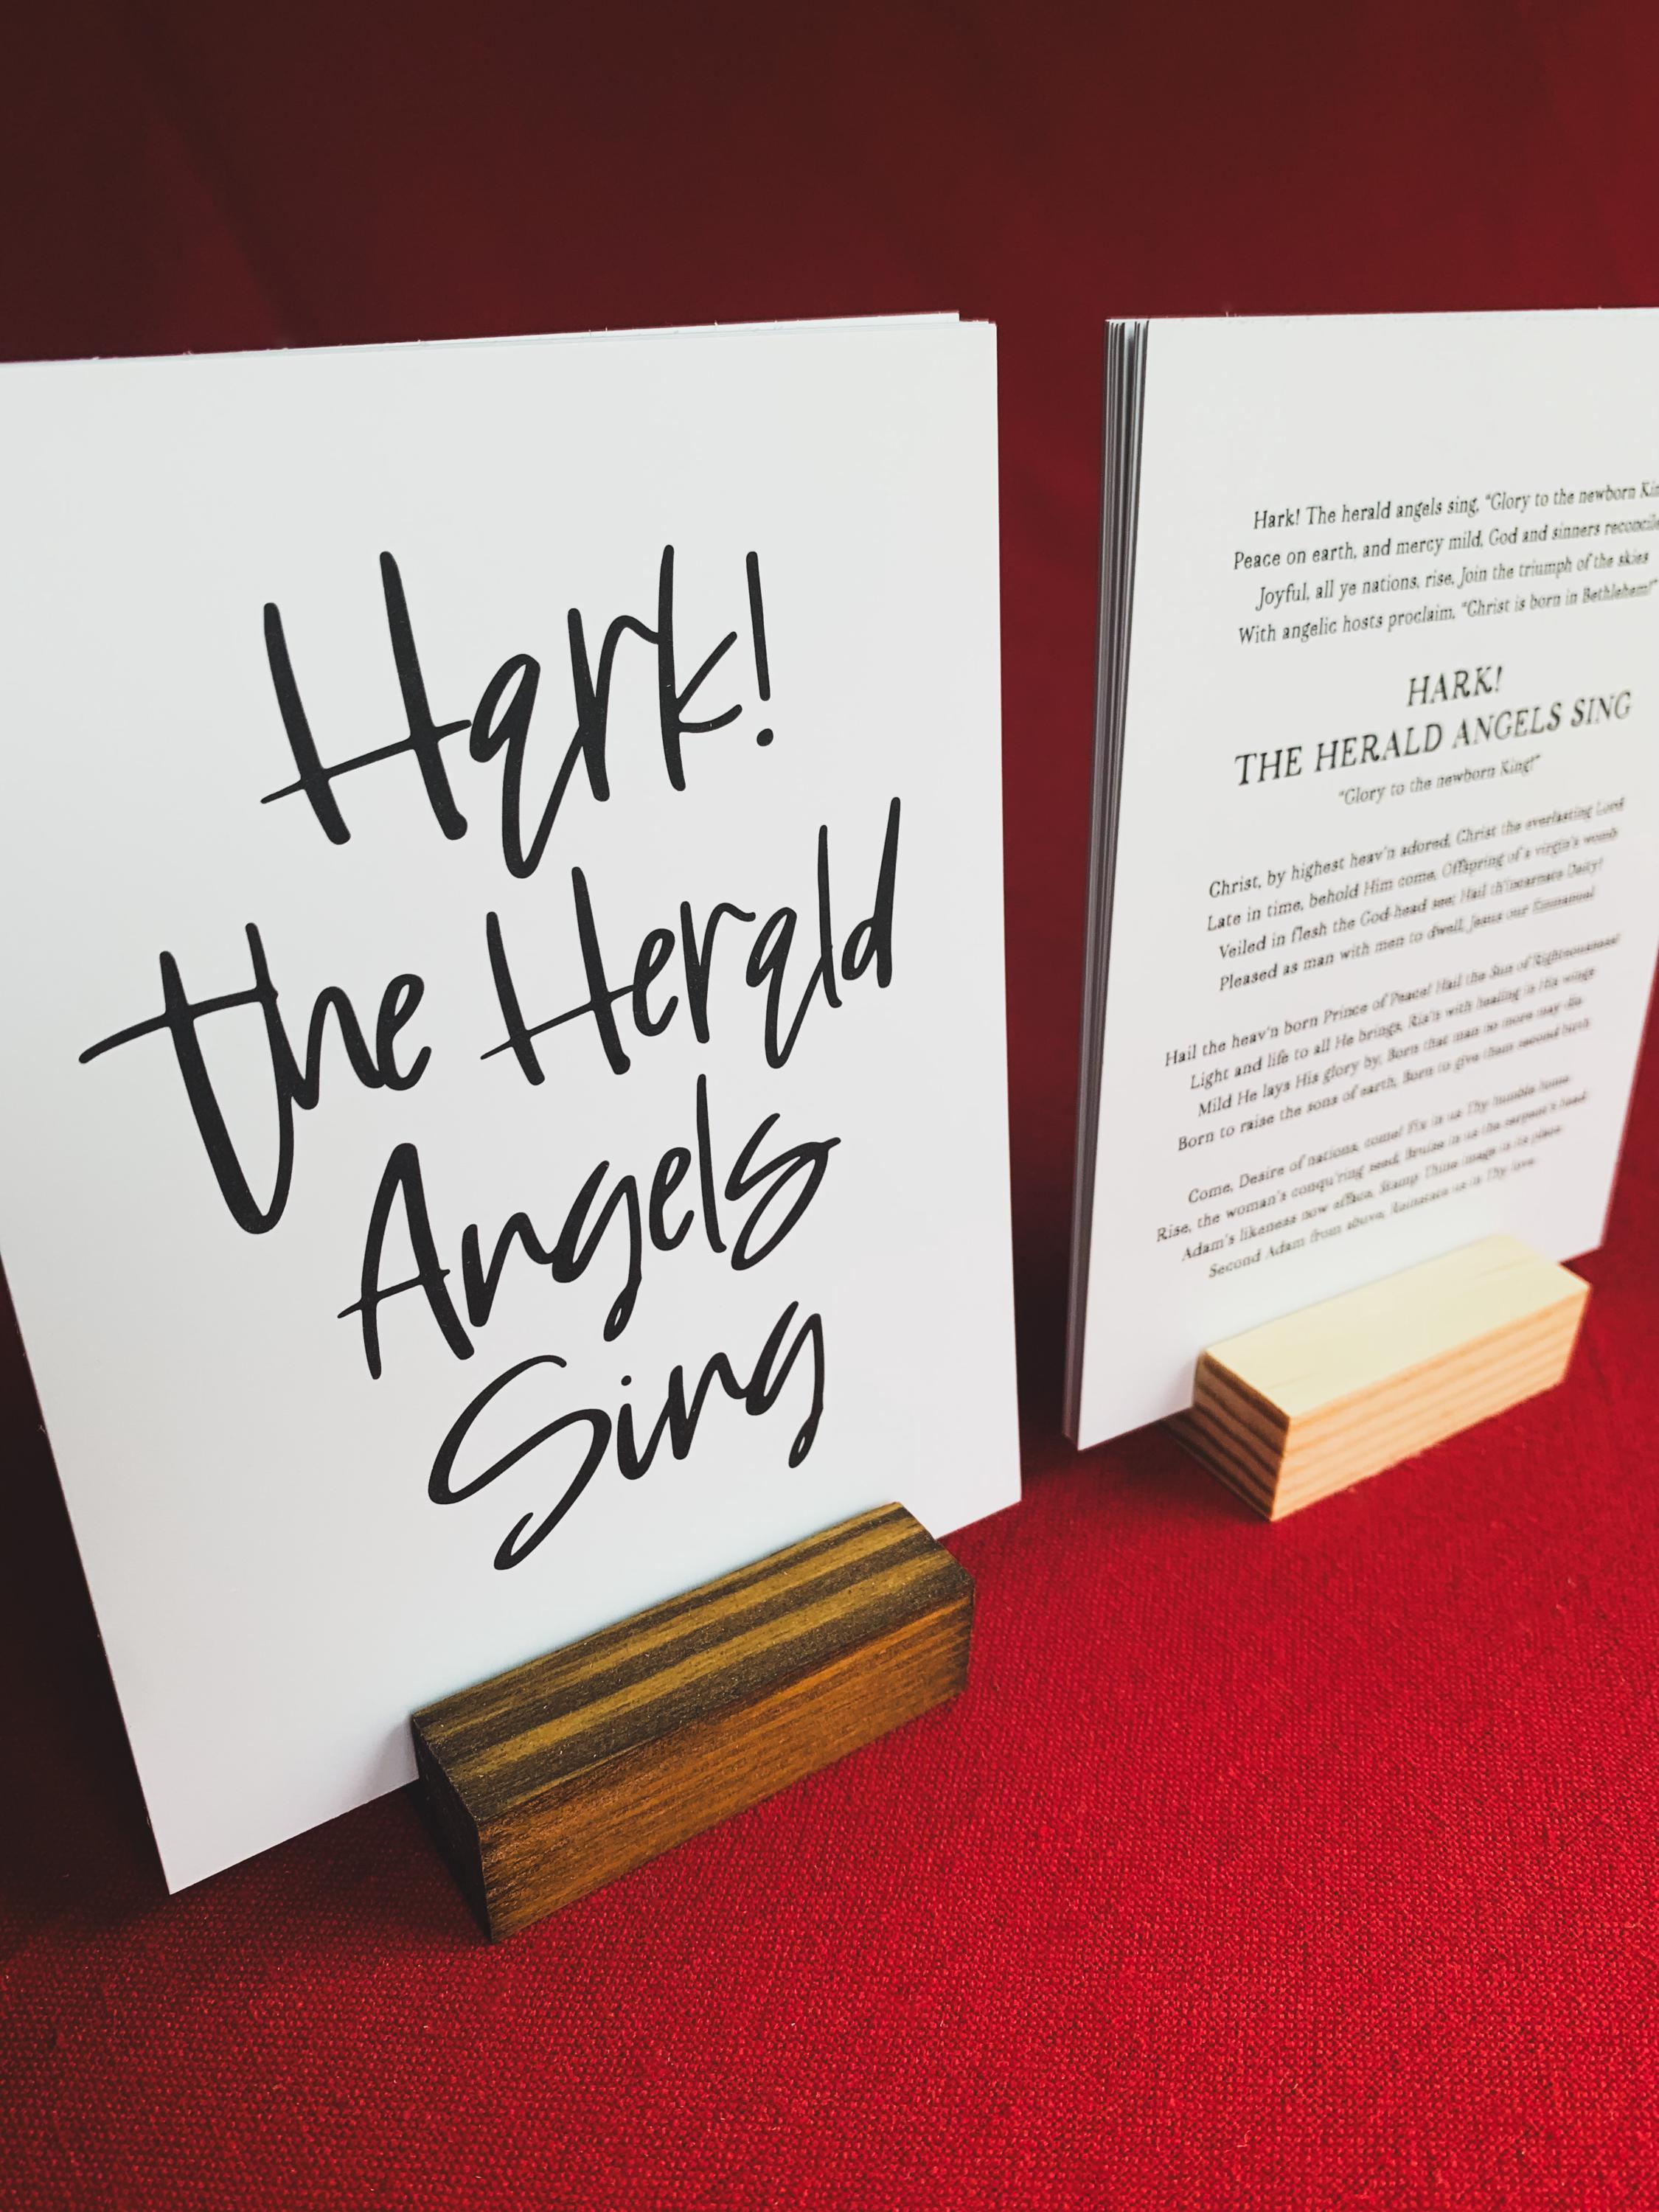 Hark!
the Herald
Angels
Sing
Hark! The herald angels sing, "Glory to the newborn
Peace on earth, and mercy mild, God and sinners
Joyful, all ye nations, rise, Join the triumph of the skies
With angelic hosts proclaim, "Christ is born in Bethlehem!"
HARK!
THE HERALD ANGELS SING
"Glory to the newborn King!"
Christ, by highest heav'n adored, Christ the everlasting Lord
Late in time, behold Him come, Offspring of a virgin's womb
Veiled in flesh the God-head see; Hail th'incarnate Deity!
Pleased as man with men to dwell, Jesus our Emmanuel
Hail the heav'n born Prince of Peace! Hail the Sun of Righteousness!
Light and life to all He brings, Ris'n with healing in His wings
Mild He lays His glory by, Born that man no more may die
Born to raise the sons of earth, Born to give them second birth
Come, Desire of nations, come! Fix in us Thy humble home
Rise, the woman's conqu'ring seed, Bruise in us the serpent's head
Adam's likeness now efface, Stamp Thine image in its place
Second Adam from above, Reinstate us in Thy love